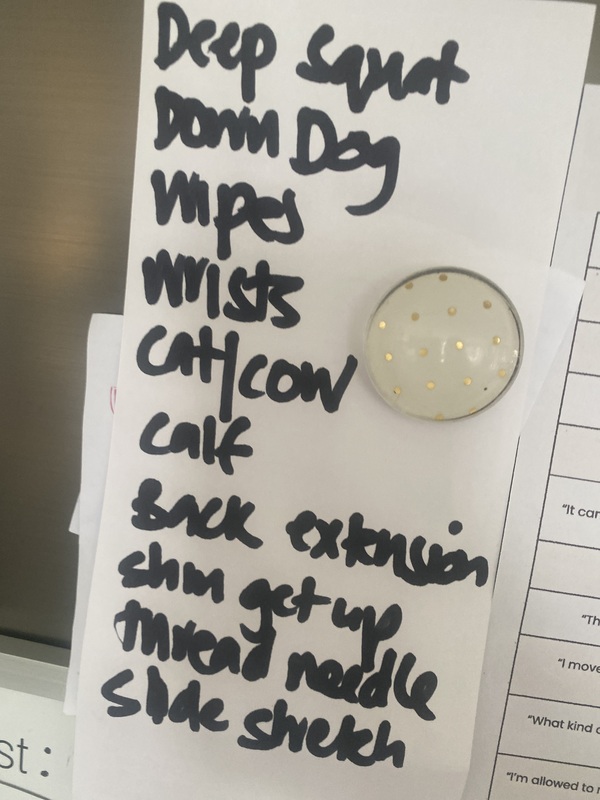 Deep Squat
Down Dog
Wipes
Wrists
Cat/cow
Calf
Back extension
shin get up
thread needle
Slide stretch
st:
"It can
"Th
"I move
"What kind o
"I'm allowed to r